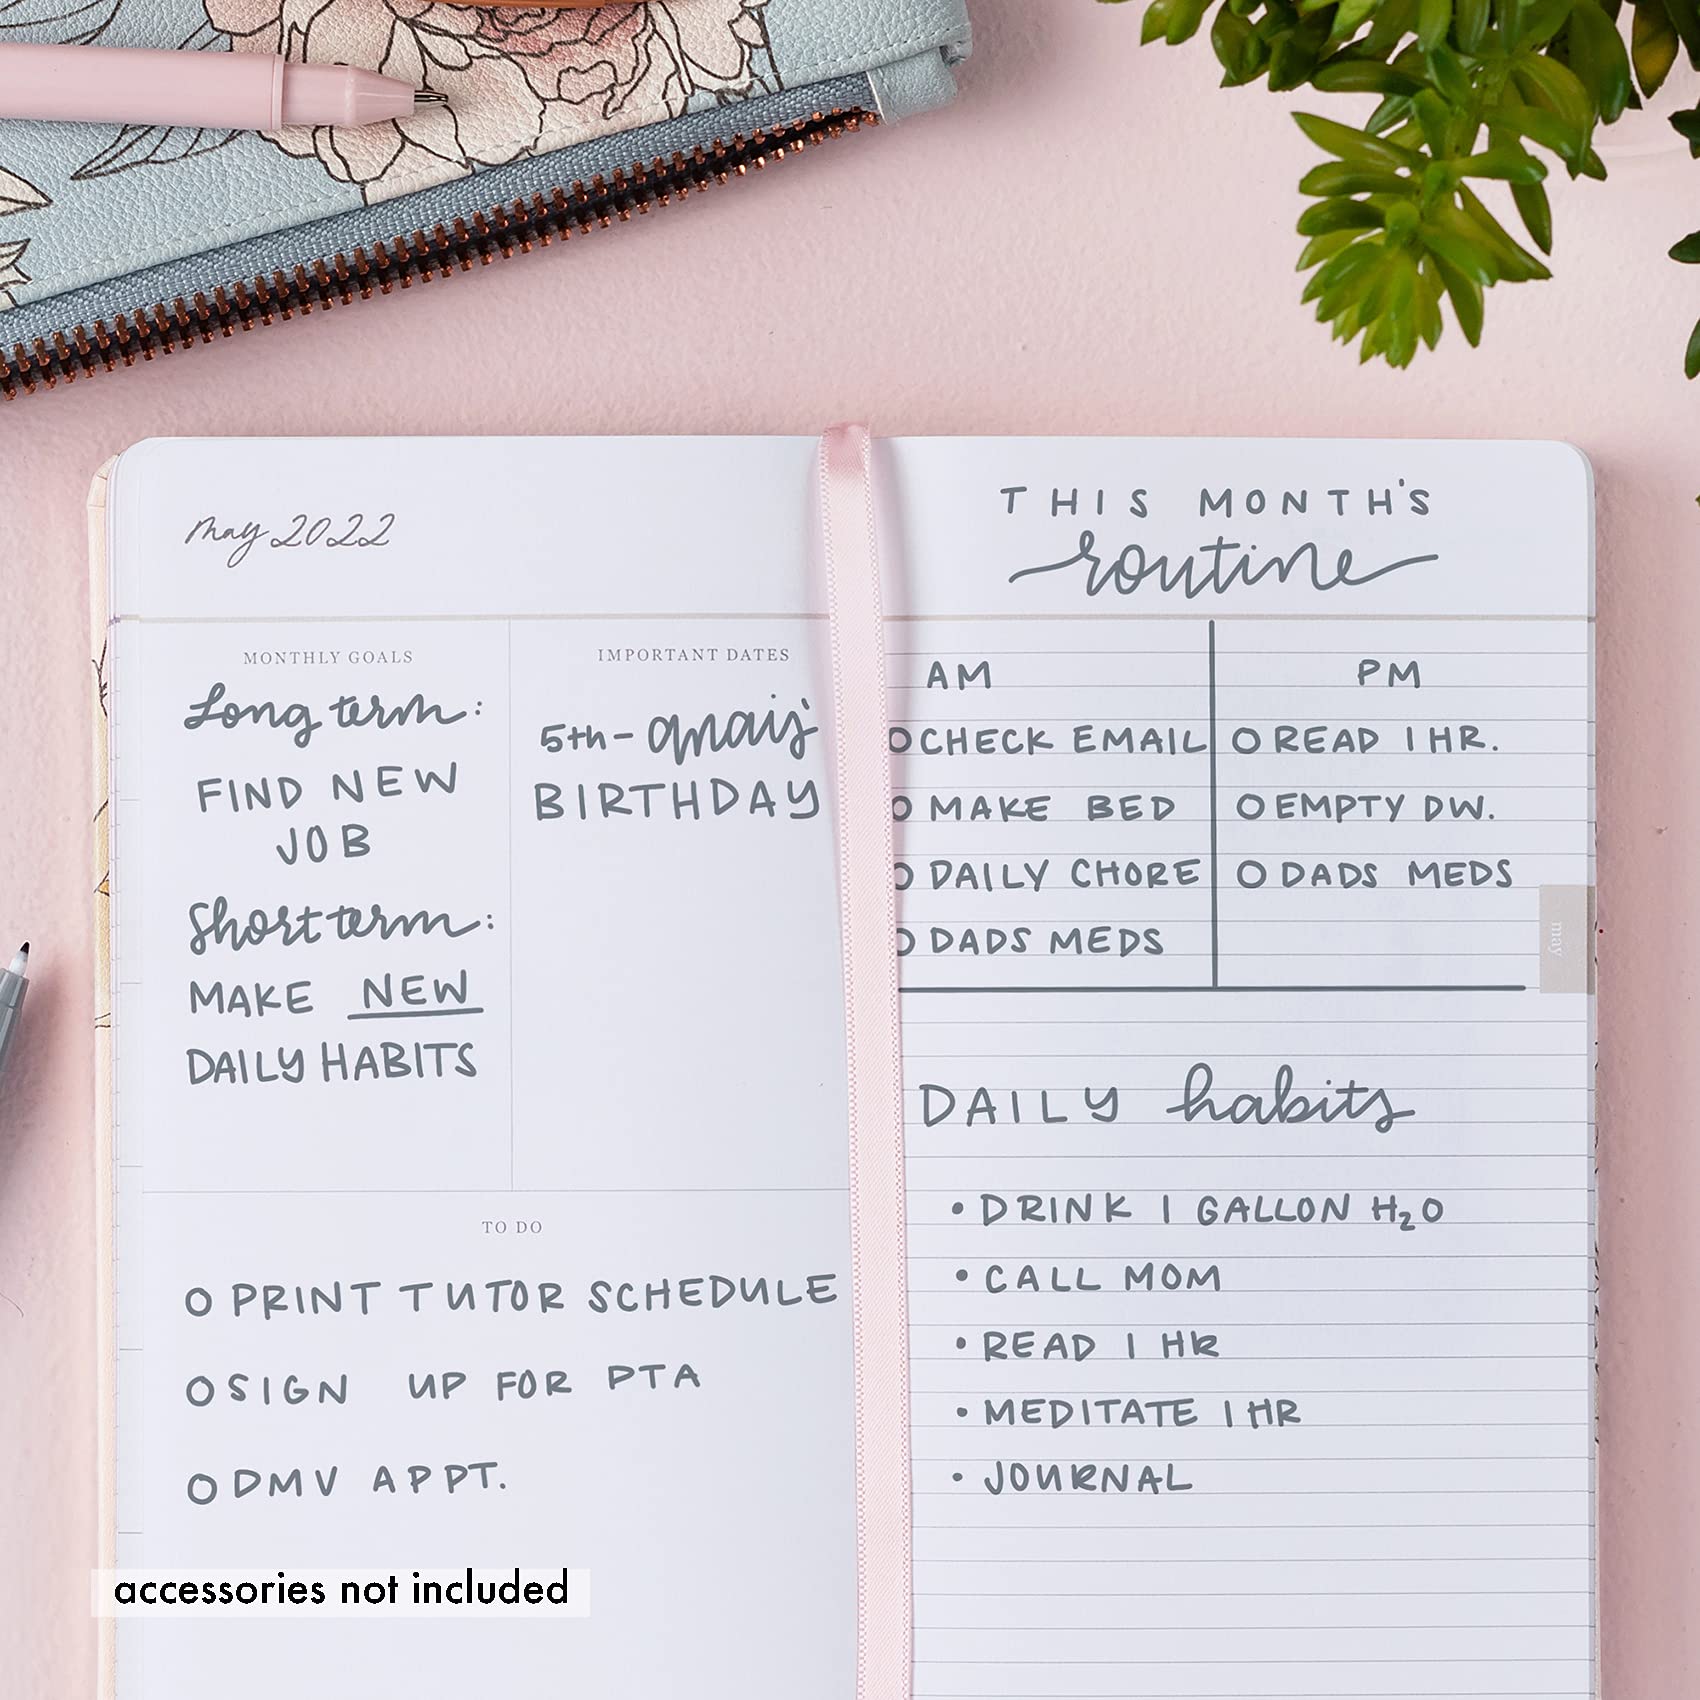 may 2022
MONTHLY GOALS
Long term:
FIND NEW
JOB
Short term:
MAKE NEW
DAILY HABITS
IMPORTANT DATES
5th-
BIRTHDAY
TO DO
O PRINT TUTOR SCHEDULE
O SIGN UP FOR PTA
O DMV APPT.
THIS MONTH'S
routine
AM
O CHECK EMAIL
O MAKE BED
O DAILY CHORE
O DADS MEDS
PM
O READ 1 HR.
O EMPTY DW.
O DADS MEDS
may
DAILY habits
• DRINK 1 GALLON H₂O
• CALL MOM
• READ 1 HR
• MEDITATE 1 HR
• JOURNAL
accessories not included